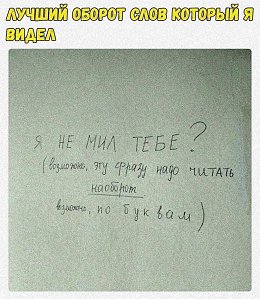 ЛУЧШИЙ ОБОРОТ СЛОВ КОТОРЫЙ Я
ВИДЕЛ
Я НЕ МИЛ ТЕБЕ?
(возможно, эту фразу надо ЧИТАТЬ
наоборот
возможно, по буквам)